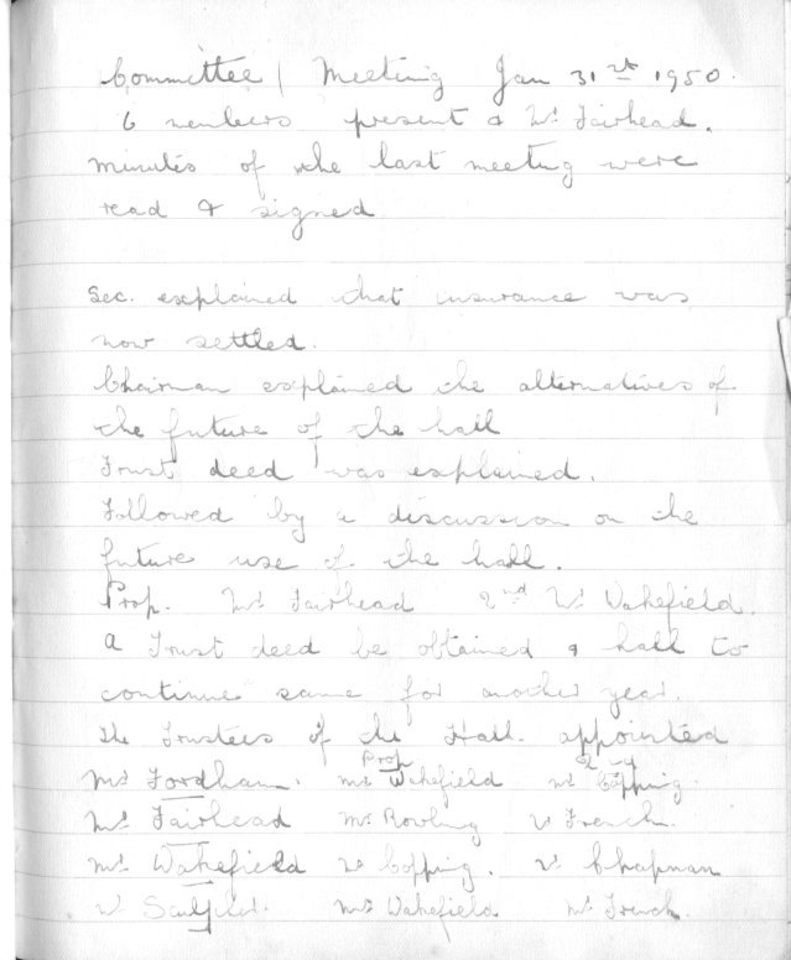 Committee / Meeting Jan 31st 1950.
6 members present & Mr Fairhead.
Minutes of the last meeting were
read & signed
Sec. explained that insurance was
now settled.
Chairman explained the alternatives of
the future of the hall
Trust deed was explained.
Followed by a discussion on the
future use of the hall.
Prop. Mr Fairhead 2nd Mr Wakefield.
A Trust deed be obtained & hall to
continue same for another year.
The Trustees of the Hall. appointed
Prop 2nd
Mr Fordham. Mr Wakefield Mr Copping.
Mr Fairhead Mr Rowling Mr French.
Mr Wakefield Mr Copping. Mr Chapman
Mr Mr Wakefield Mr French.